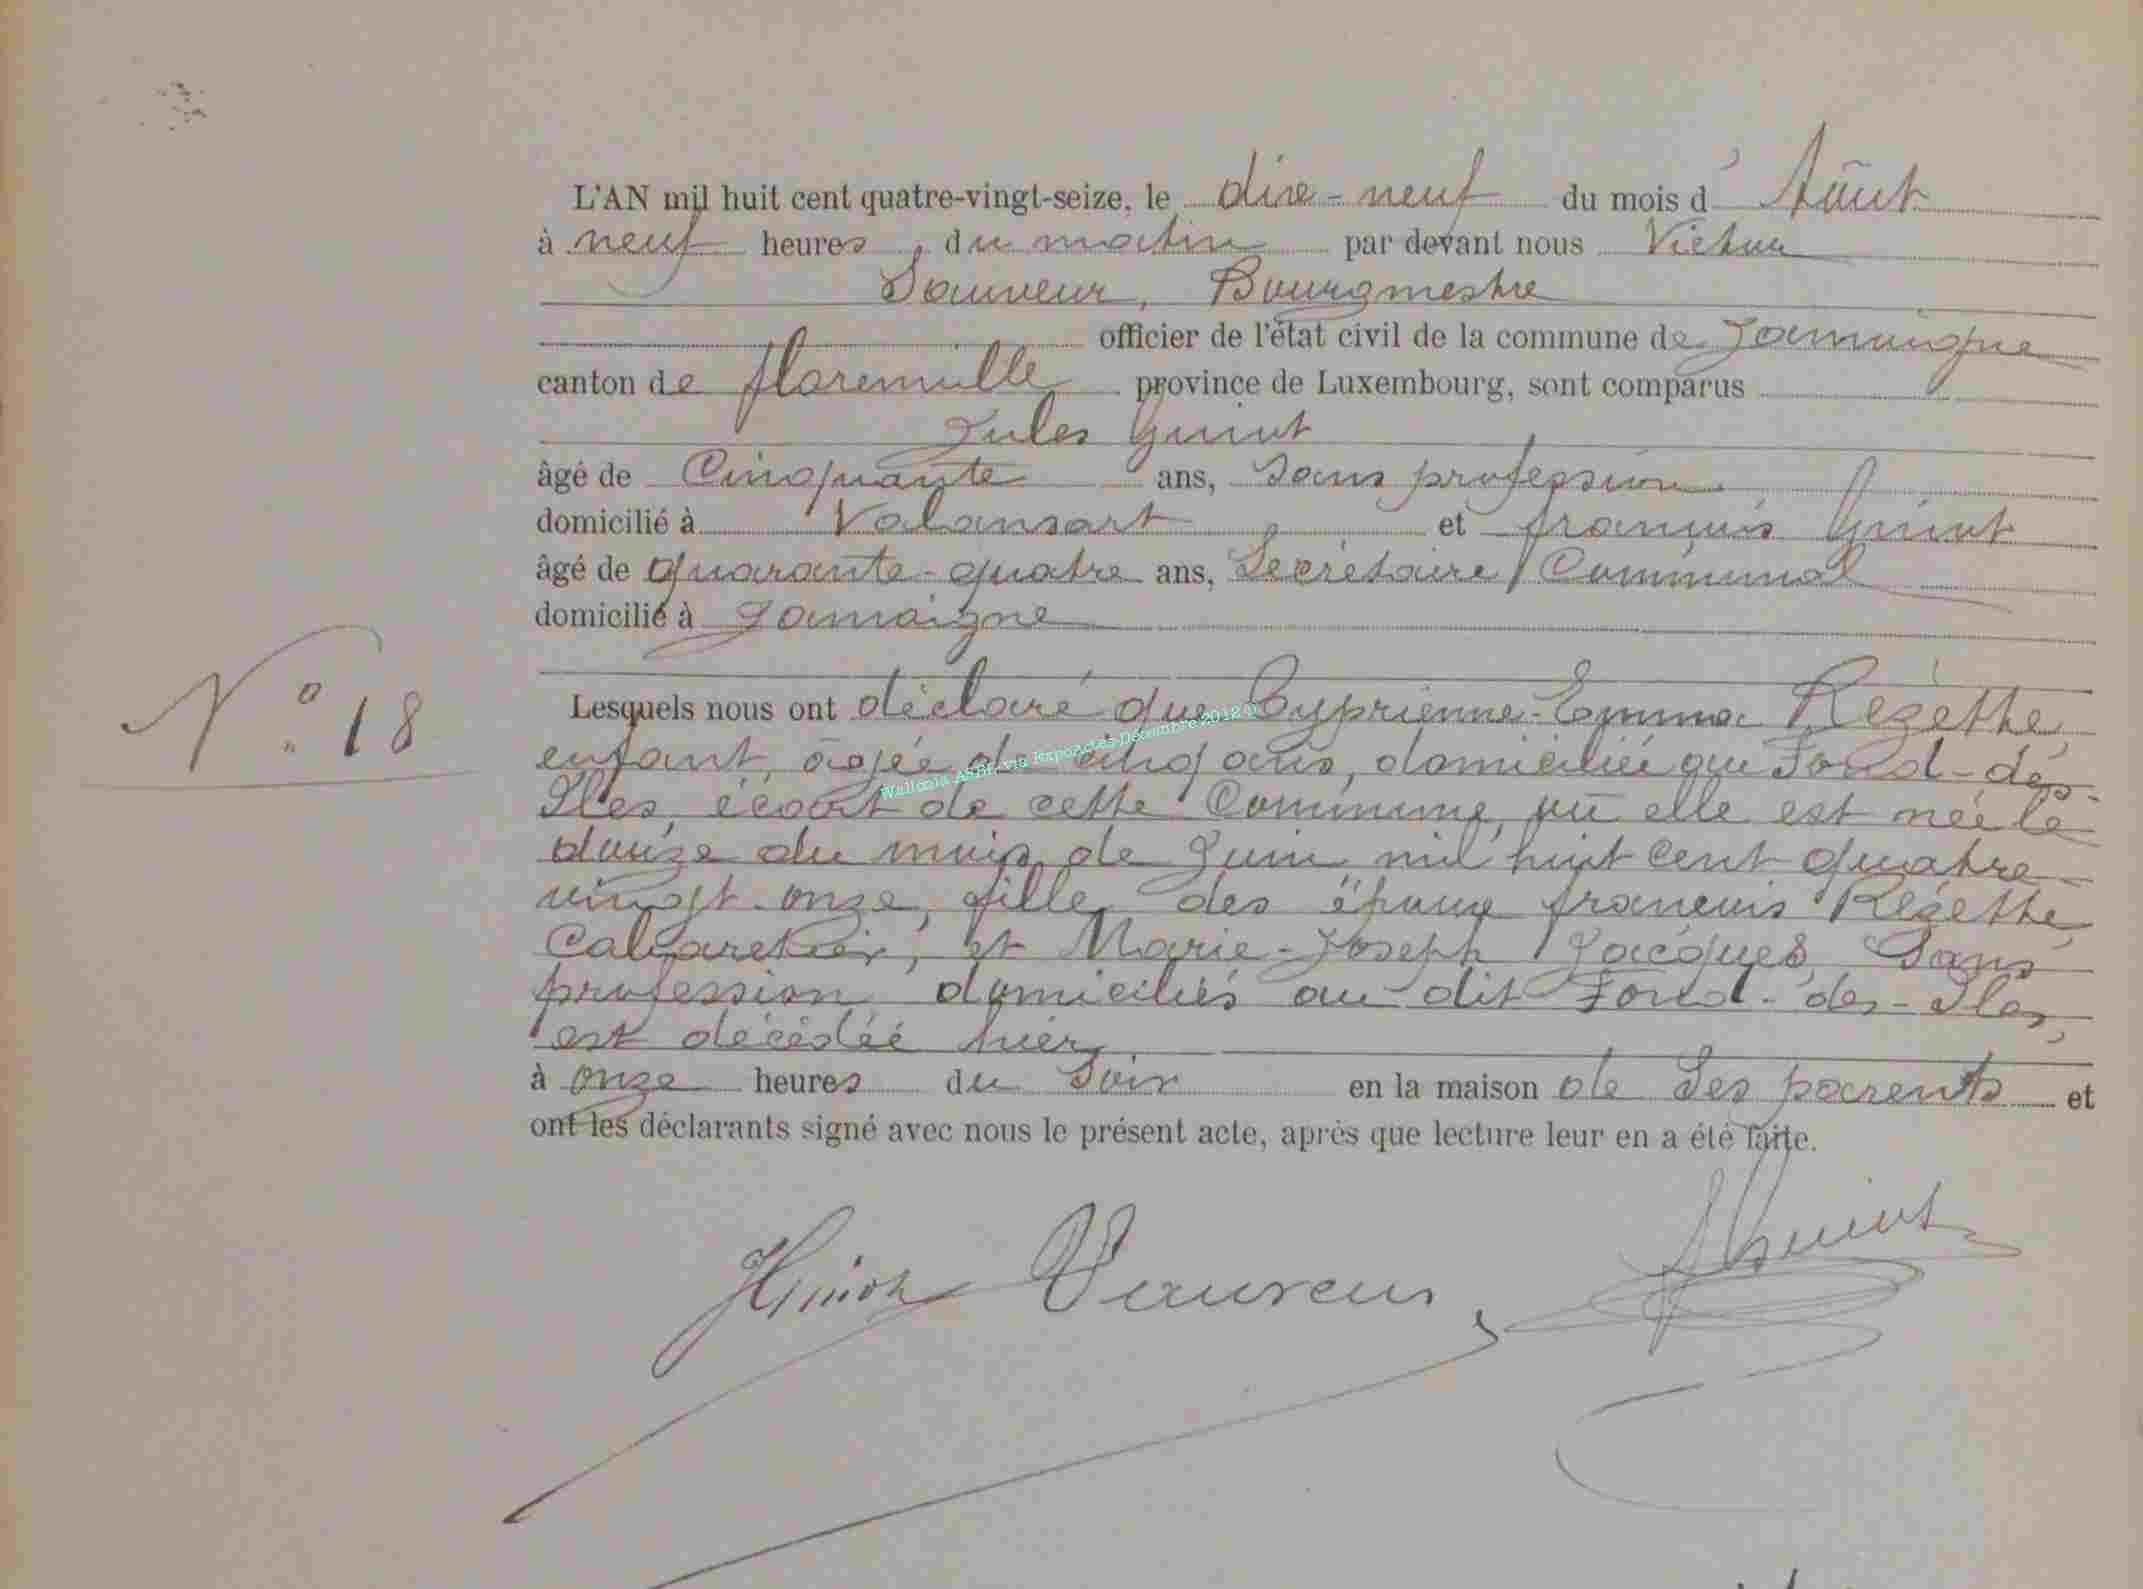 L'AN mil huit cent quatre-vingt-seize, le dixe-neuf du mois d' Août
à neuf heures du matin par devant nous Victor
Sauveur, Bourgmestre
officier de l'état civil de la commune de Jamoigne
canton de florenville province de Luxembourg, sont comparus
Jules Guiot
âgé de Cinquante ans, Sans profession
domicilié à Valansart et françois Guiot
âgé de quarante-quatre ans, Secrétaire Communal
domicilié à Jamoigne
Lesquels nous ont déclaré que Cyprienne-Emma Rézette,
N° 18
enfant, âgée de cinq ans, domiciliée au Fond-des-
Iles, écart de cette Commune, où elle est née le
douze du mois de Juin mil huit cent quatre
vingt-onze, fille des époux françois Rézette,
Cabaretier, et Marie-Joseph Jacques, Sans
profession domiciliés au dit Fond-des-Iles,
est décédée hier
à onze heures du Soir en la maison de Ses parents et
ont les déclarants signé avec nous le présent acte, après que lecture leur en a été faite.
Wallonia ASBL, via ExpoActes-Décembre 2018 ©
JGuiot Vr Sauveur FGuiot